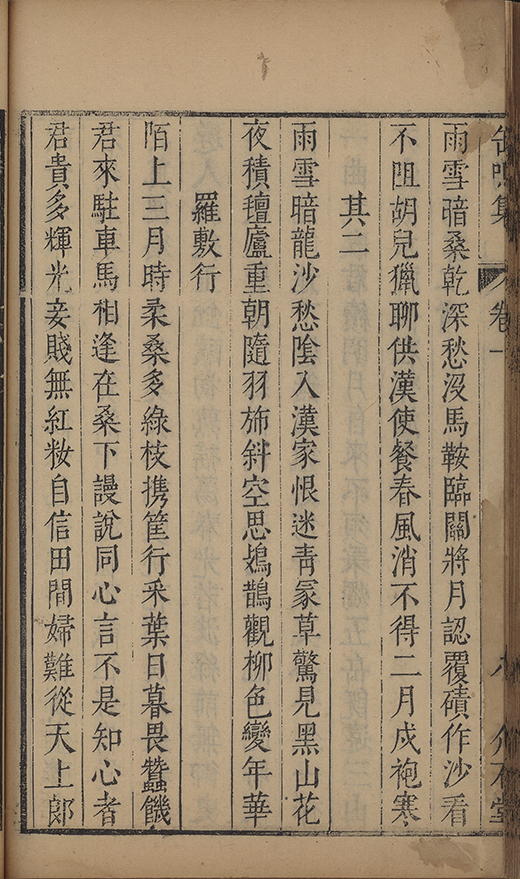 集 卷一
雨雪暗桑乾深愁沒馬鞍臨關將月認覆磧作沙看
不阻胡兒獵聊供漢使餐春風消不得二月戍袍寒
其二
雨雪暗龍沙愁陰入漢家恨迷青冢草驚見黑山花
夜積氊廬重朝隨羽斾斜空思鳷鵲觀柳色變年華
羅敷行
陌上三月時柔桑多綠枝携筐行釆葉日暮畏蠶饑
君來駐車馬相逢在桑下謾說同心言不是知心者
君貴多輝光妾賤無紅粧自信田間婦難從天上郎